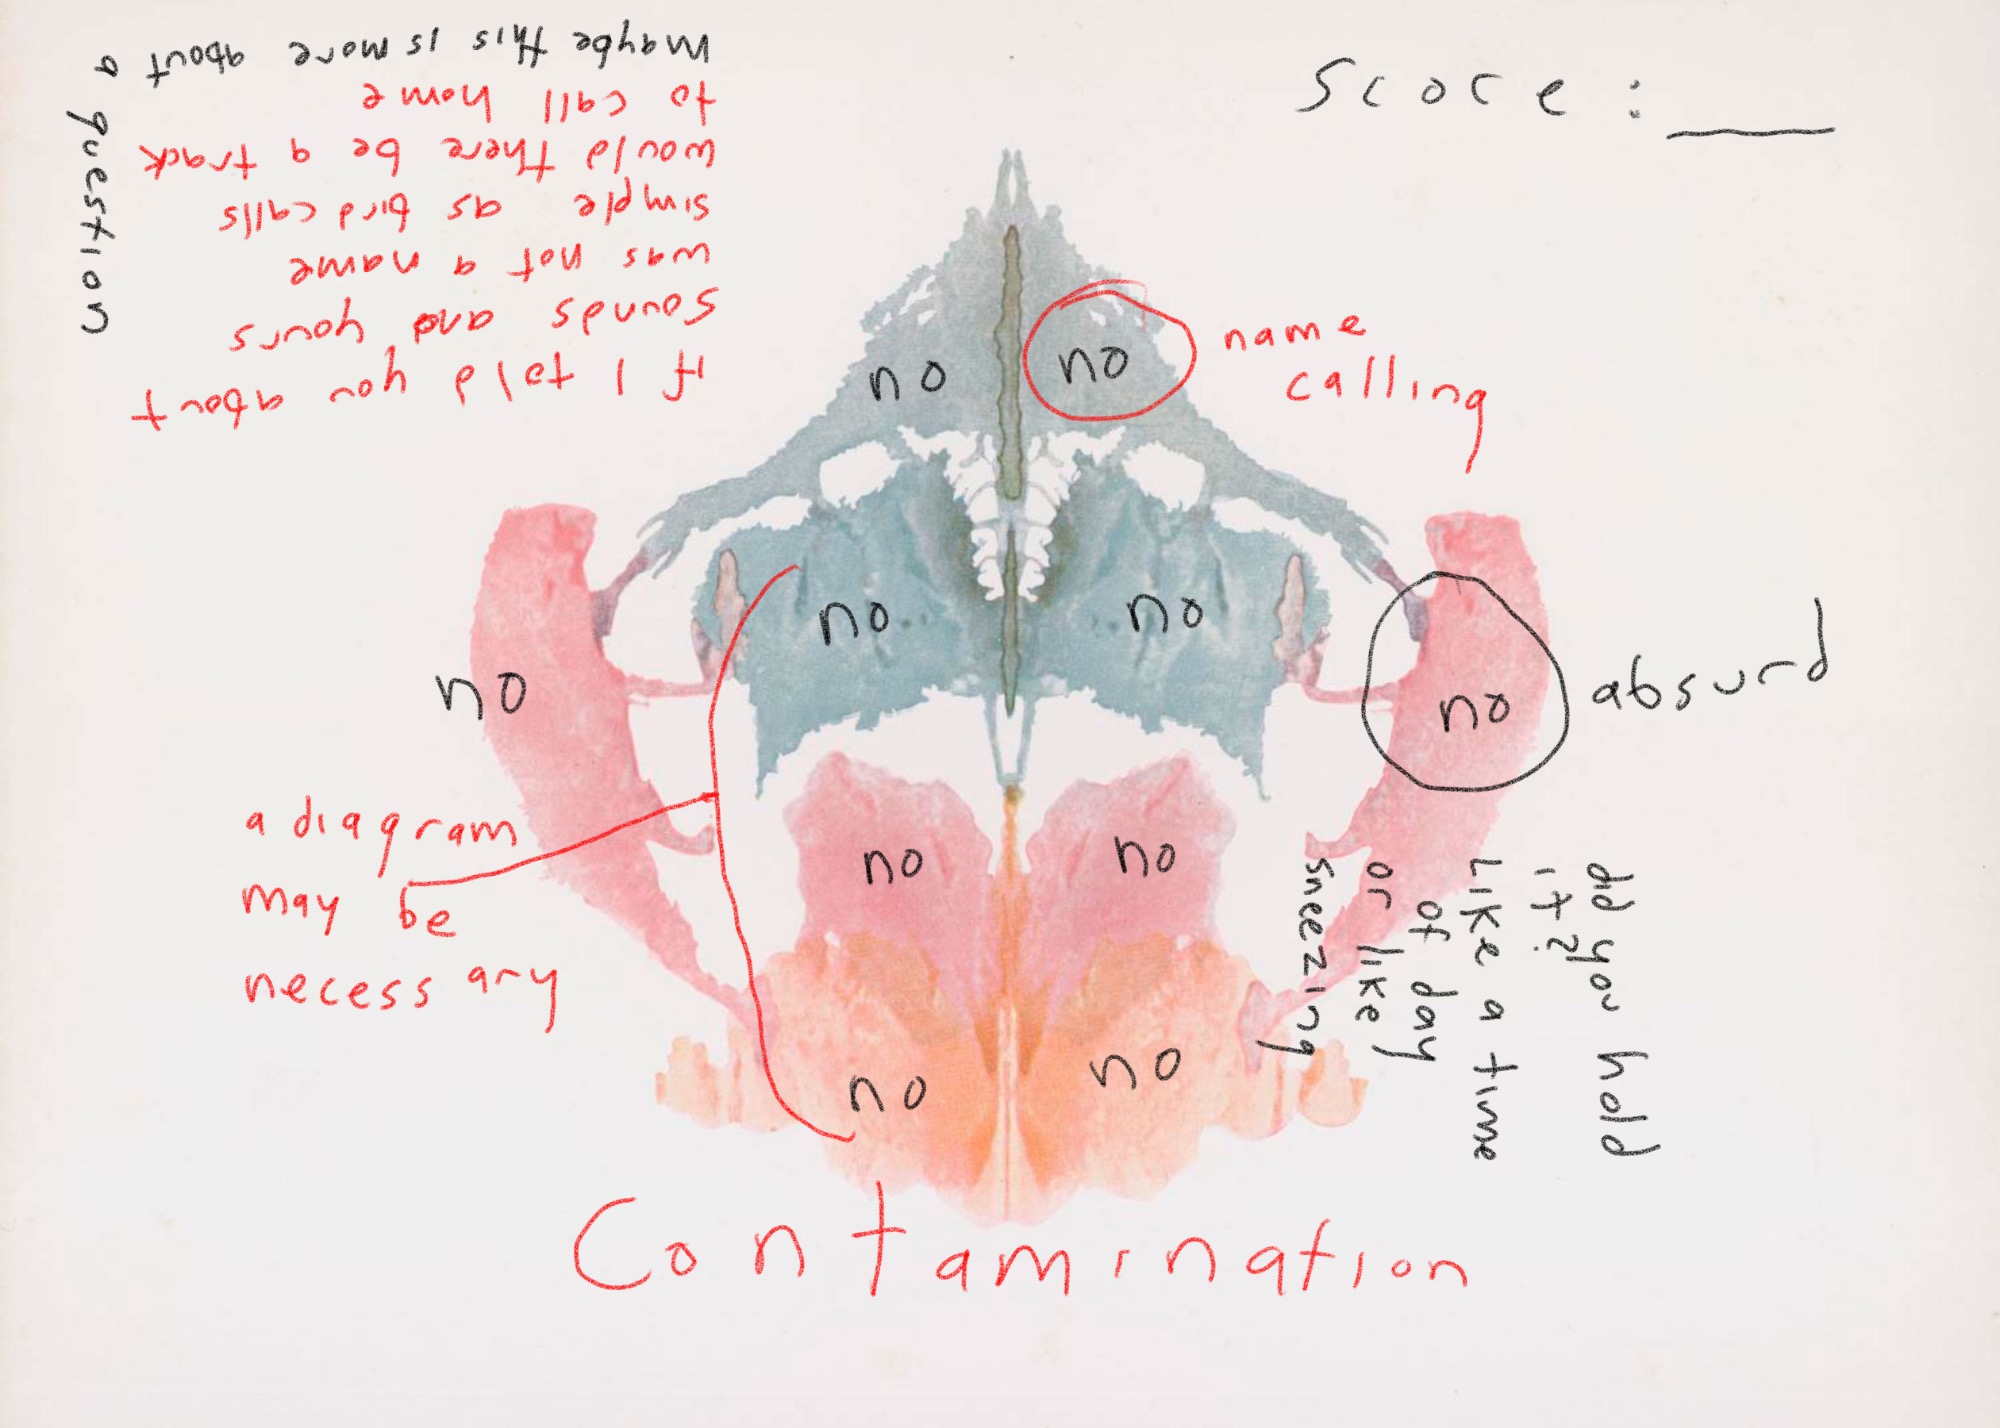 Score: ___
If I told you about
sounds and yours
was not a name
simple as bird calls
would there be a track
to call home
maybe this is more about a
question
no
no
name
calling
no
no
no
no
absurd
a diagram
may be
necessary
no
no
did you hold
it?
Like a time
of day
or like
sneezing
no
no
Contamination